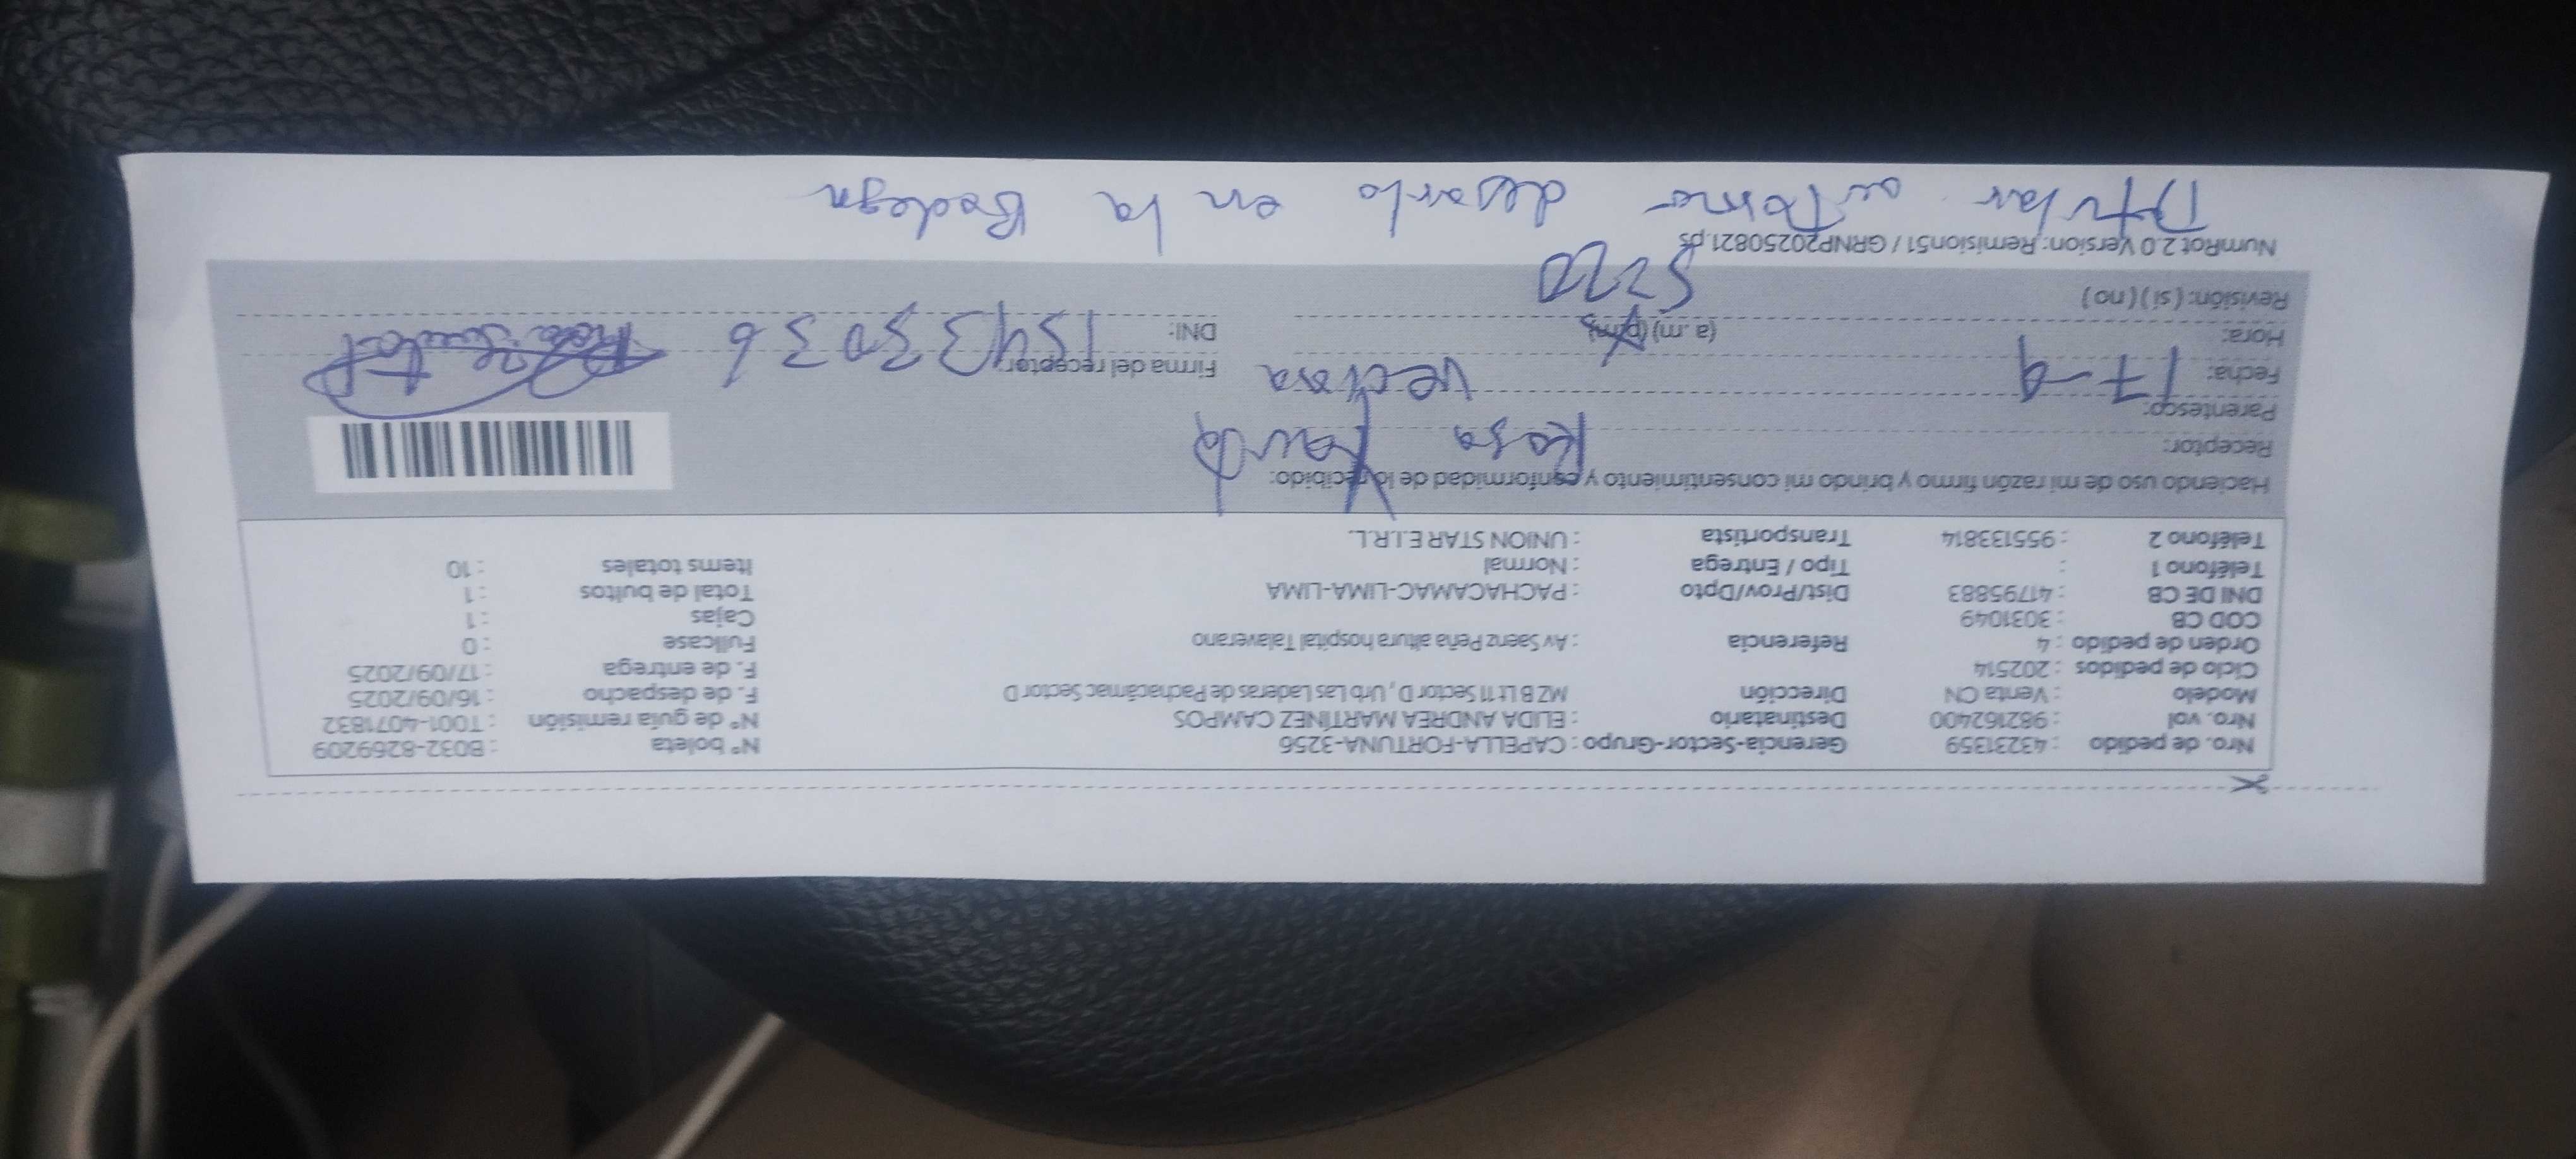 Nro. de pedido : 43231359 Gerencia-Sector-Grupo : CAPELLA-FORTUNA-3256 N° boleta : B032-8269209
Nro. vol : 982162400 Destinatario : ELIDA ANDREA MARTÍNEZ CAMPOS N° de guía remisión : T001-4071832
Modelo : Venta CN Dirección MZ B Lt 11 Sector D, Urb Las Laderas de Pachacámac Sector D F. de despacho : 16/09/2025
Ciclo de pedidos : 202514 F. de entrega : 17/09/2025
Orden de pedido : 4 Referencia : Av Saenz Peña altura hospital Talaverano Fullcase : 0
COD CB : 3031049 Cajas : 1
DNI DE CB : 41795883 Dist/Prov/Dpto : PACHACAMAC-LIMA-LIMA Total de bultos : 1
Teléfono 1 : Tipo / Entrega : Normal Items totales : 10
Teléfono 2 : 955133814 Transportista : UNION STAR E.I.R.L.
Haciendo uso de mi razón firmo y brindo mi consentimiento y conformidad de lo recibido:
Receptor: Rosa
Parentesco: vecina
Fecha: 17-9 Firma del receptor:
Hora: (a.m) (p.m) DNI: 15433036
Revisión: (si) (no) 5220
NumRot 2.0 Version: Remision51 / GRNP20250821.ps
Titular autorizo dejarlo en la Bodega